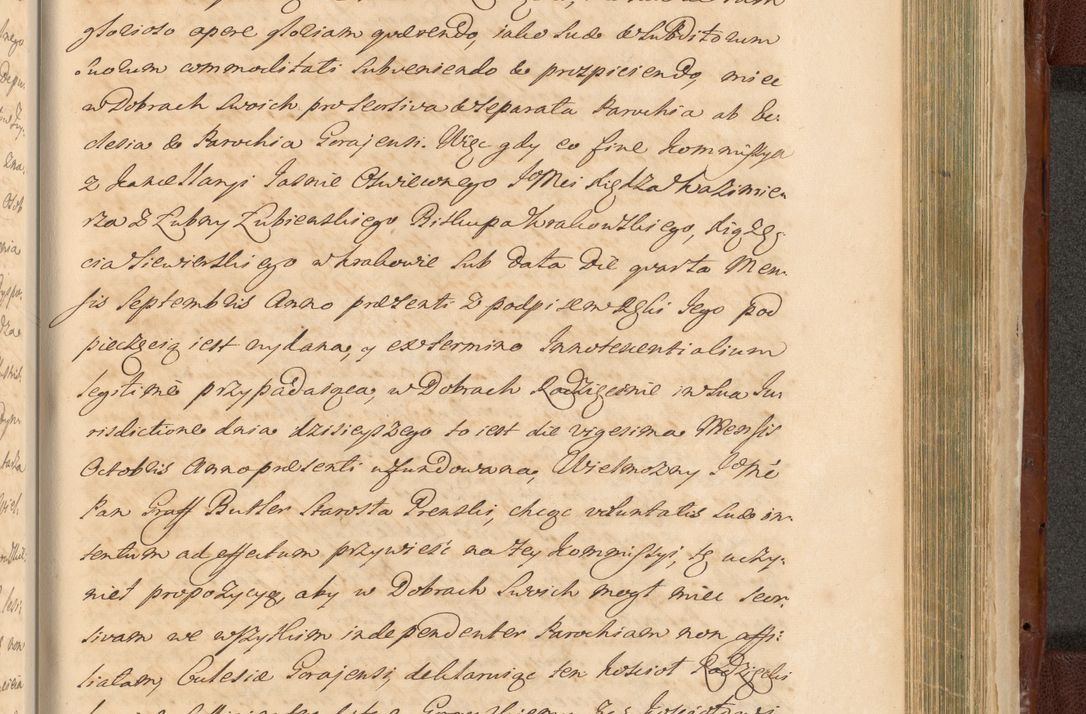 glorioso opere gloriam quærendo, jako suo & subditorum
suorum commoditati subveniendo & prospiciendo, miec
w Dobrach swoich pro seorsiva & separata Parochia ab Ec-
clesia & Parochia Gorajensi. Więc gdy eo fine Kommissya
z Kancellaryi Jasnie Oswieconego JoMci Xiędza Kazimie-
rza z Łubny Łubienskiego Biskupa Krakowskiego, Xiążę-
cia Siewierskiego w Krakowie sub Data Die quarta Men-
sis Septembris Anno præsenti z podpisem ręki Jego pod
pieczęcią iest wydana, y ex termino Innotescentialium
legitime przypadaiąca, w Dobrach Radzięcinie in sua Ju-
risdictione dnia dzisieyszego to iest die vigesima Mensis
Octobris Anno præsenti ufundowana, Wielmozny JoMć
Pan Graff Butler Starosta Prenski, chcąc voluntatis suæ in-
tentum ad effectum przywieść na tey Kommissyi, tę uczy-
nieł propozycyą, aby w Dobrach swoich mogł miec seor-
sivam we wszystkim independenter Parochiam non affi-
liatam, Ecclesiæ Gorajensi, deklaruiąc ten Koscioł Radzięcki